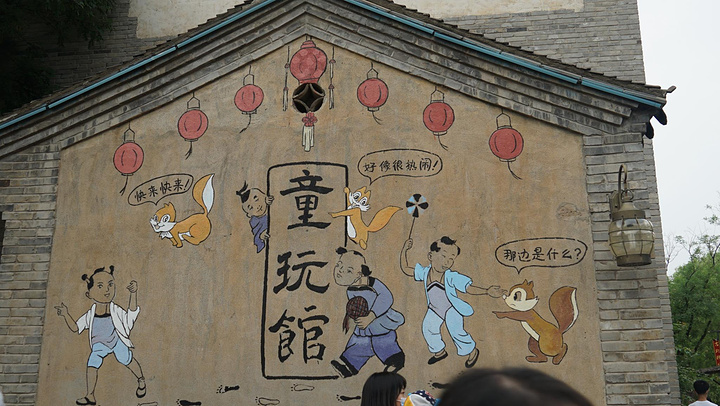 快来快来!
好像很热闹!
童玩館
那边是什么?